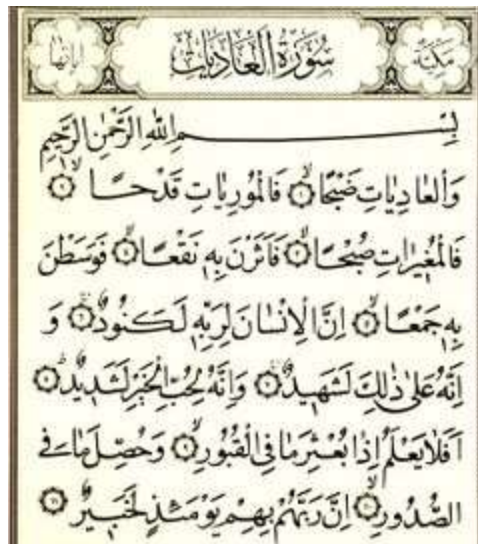 مكية سورة العاديات اياتها
بِسْمِ اللهِ الرَّحْمٰنِ الرَّحِيمِ
وَالْعَادِيَاتِ ضَبْحًا ۝ فَالْمُورِيَاتِ قَدْحًا ۝
فَالْمُغِيرَاتِ صُبْحًا ۝ فَاَثَرْنَ بِهِ نَقْعًا ۝ فَوَسَطْنَ
بِهِ جَمْعًا ۝ اِنَّ الْاِنْسَانَ لِرَبِّهِ لَكَنُودٌ ۝ وَ
اِنَّهُ عَلٰى ذٰلِكَ لَشَهِيدٌ ۝ وَاِنَّهُ لِحُبِّ الْخَيْرِ لَشَدِيدٌ ۝
اَفَلَا يَعْلَمُ اِذَا بُعْثِرَ مَا فِي الْقُبُورِ ۝ وَحُصِّلَ مَا فِي
الصُّدُورِ ۝ اِنَّ رَبَّهُمْ بِهِمْ يَوْمَئِذٍ لَخَبِيرٌ ۝